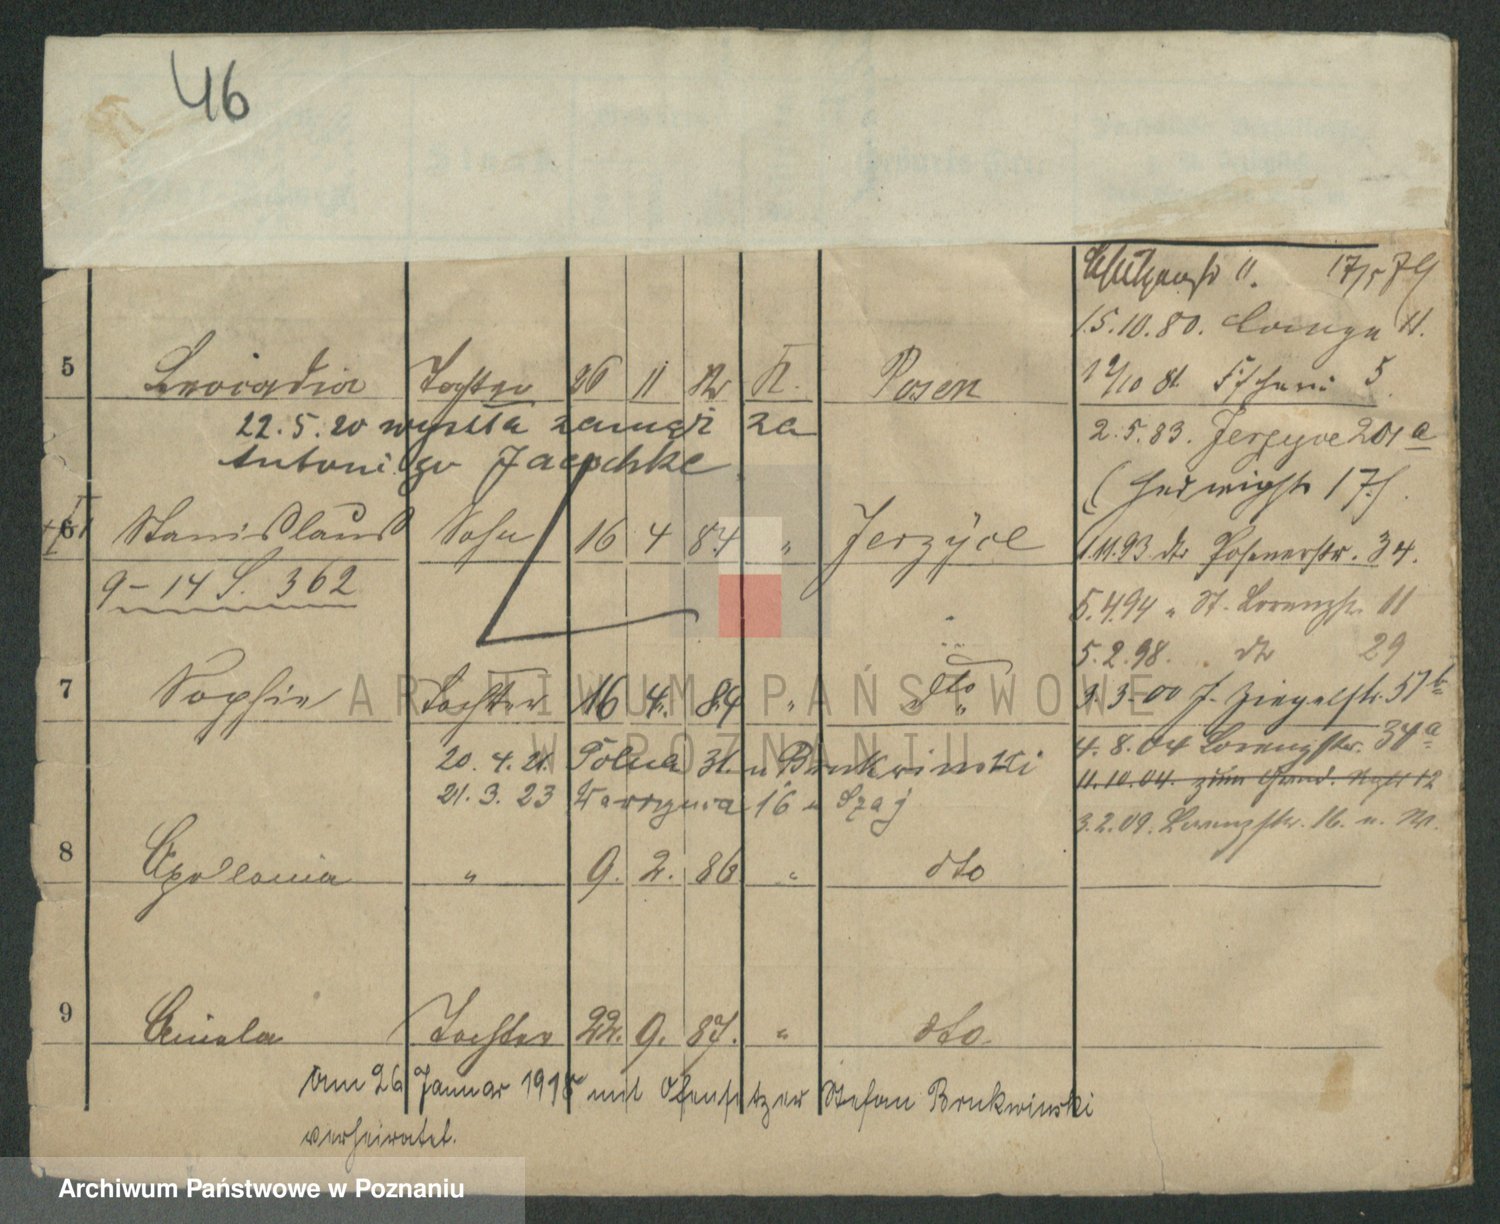 46
5 Leocadia Tochter 26 11 82 K. Posen
22.5.20 wyszła zamąż za
Antoniego Jaeschke
6 Stanislaus Sohn 16 4 84 " Jerzyce
9-14 S. 362
7 Sophie Tochter 16 4. 84 " dto
20.4.21. Polna 31 u Brukwinski
21.3.23 16 u Szaj
8 Apollonia " 9. 2. 86 " dto
9 Tochter 22. 9. 87. " dto.
Am 26 Januar 1918 mit Ofensetzer Stefan Brukwinski
verheiratet.
11. 17/5 79
15.10.80. 11.
12/10 81 5.
2.5.83. Jerzyce 201a
(Hedwigstr 17).
1.11.93 dto Posenerstr. 34.
5.4.94 " St. Lorenzstr. 11
5.2.98. dto 29
9.3.00 J. Ziegelstr. 57b
4.8.04 Lorenzstr. 37a
11.10.04. zum 12
3.2.09. Lorenzstr. 16. u. W.
ARCHIWUM PAŃSTWOWE
W POZNANIU
Archiwum Państwowe w Poznaniu